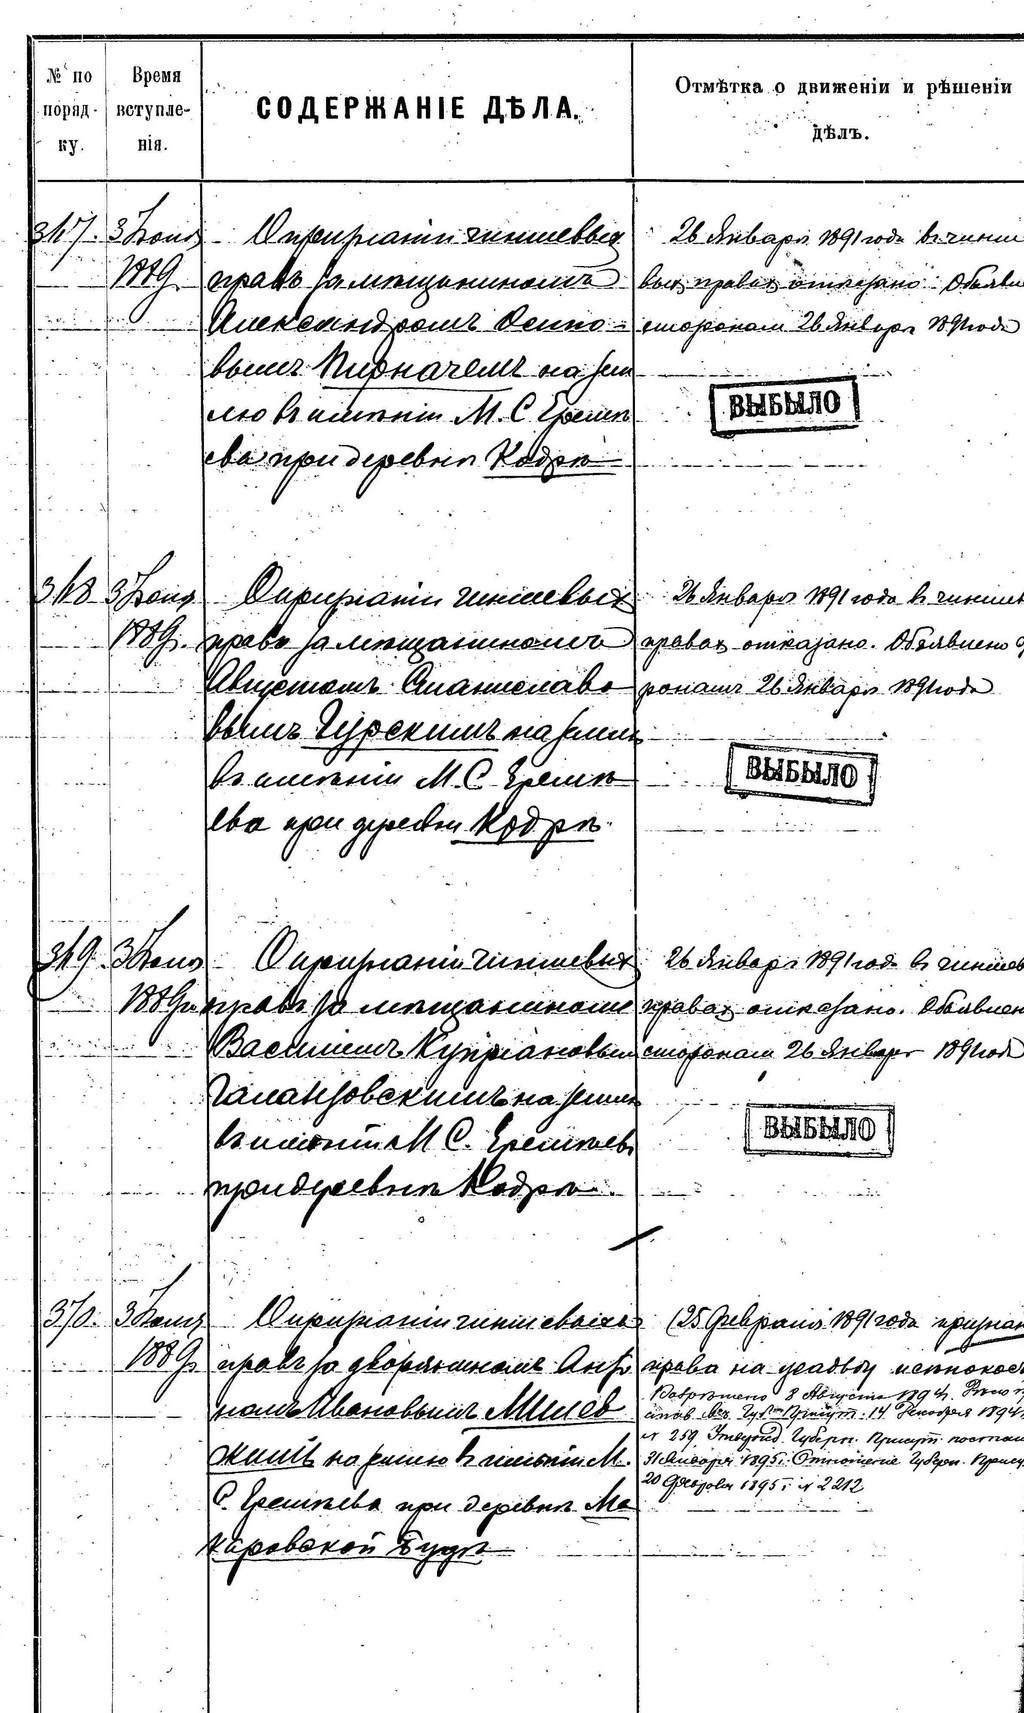 № по порядку.
Время вступленія.
СОДЕРЖАНІЕ ДѢЛА.
Отмѣтка о движеніи и рѣшеніи дѣлъ.
367. 3 Іюня 1889
О признаніи чиншевыхъ
правъ за мѣщаниномъ
Александромъ Осипо-
вымъ Пирначемъ на зем
лю въ имѣніи М. С. Еремѣ
ева при деревнѣ Кодрѣ
26 Января 1891 года въ чинше
выхъ правахъ отказано. Объявле
сторонамъ 26 Января 1891 года
ВЫБЫЛО
368 3 Іюня 1889.
О признаніи чиншевыхъ
правъ за мѣщаниномъ
Августомъ Станиславо
вымъ Гурскимъ на землю
въ имѣніи М. С. Еремѣ
ева при деревнѣ Кодрѣ.
26 Января 1891 года въ чиншев
правахъ отказано. Объявлено
ронамъ 26 Января 1891 года
ВЫБЫЛО
369. 3 Іюня 1889
О признаніи чиншевыхъ
правъ за мѣщаниномъ
Василіемъ Купріановымъ
на землю
въ имѣніи М. С. Еремѣева
при деревнѣ Кодрѣ.
26 Января 1891 года въ чиншев
правахъ отказано. Объявлен
сторонамъ 26 Января 1891 года
ВЫБЫЛО
370. 3 Іюня 1889
О признаніи чиншевыхъ
правъ за дворяниномъ
Ивановымъ
на землю въ имѣніи М.
С. Еремѣева при деревнѣ Ма
каровской Будѣ
25 Февраля 1891 года признан
права на усадьбу
8 Августа 1894
14 Декабря 1894
№ 259. Губерн. Присут. постан
31 Января 1895 г. Отношеніе Губерн. Присут
20 Февраля 1895 г. № 2212